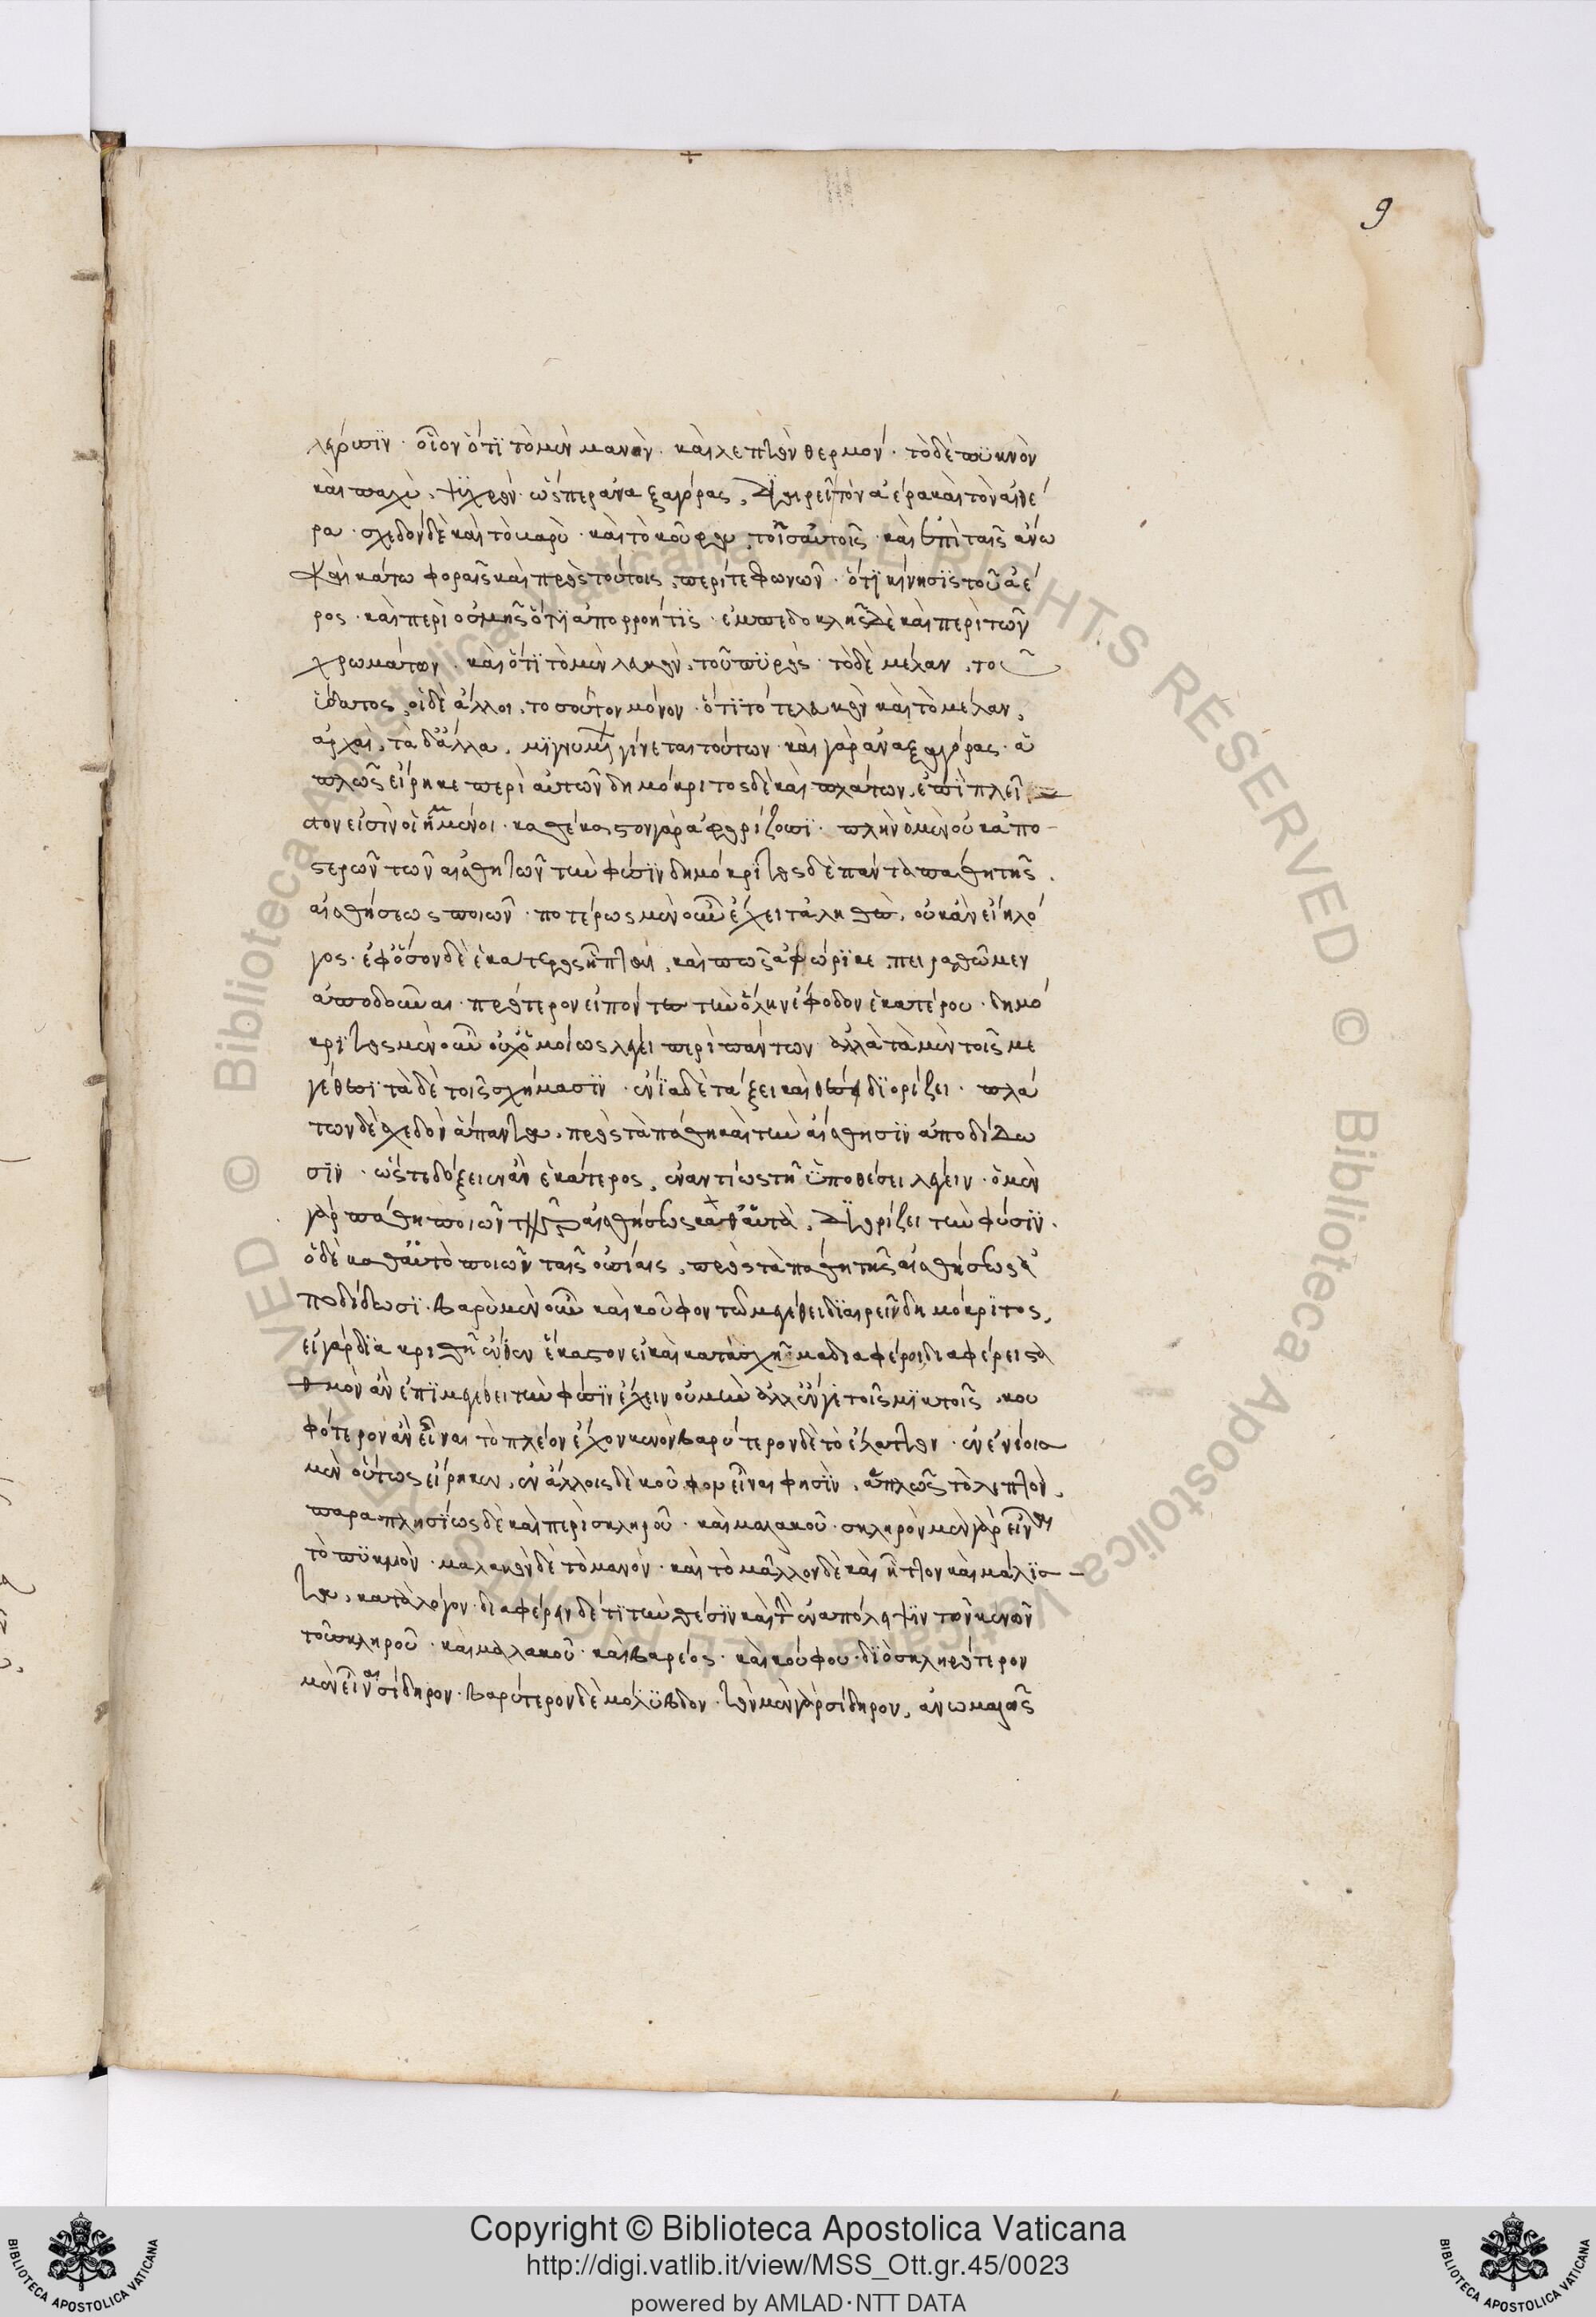 9
λέγουσιν · οἷον ὅτι τὸ μὲν μανὸν · καὶ λεπτὸν θερμόν · τὸ δὲ πυκνὸν
καὶ παχὺ, ψυχρόν · ὥσπερ ἀναξαγόρας, διαιρεῖ τὸν ἀέρα καὶ τὸν αἰθέ
ρα · σχεδὸν δὲ καὶ τὸ βαρὺ · καὶ τὸ κοῦφον, τοῖς αὐτοῖς · καὶ ἐπὶ ταῖς ἄνω
καὶ κάτω φοραῖς καὶ πρὸς τούτοις, περί τε φωνῶν · ὅτι κίνησις τοῦ ἀέ
ρος · καὶ περὶ ὀσμῆς ὅτι ἀπορροή τις · ἐμπεδοκλῆς δὲ καὶ περὶ τῶν
χρωμάτων · καὶ ὅτι τὸ μὲν λευκὸν, τοῦ πυρός · τὸ δὲ μέλαν, τοῦ
ὕδατος, οἱ δὲ ἄλλοι, τοσοῦτον μόνον · ὅτι τό τε λευκὸν καὶ τὸ μέλαν,
ἀρχαὶ, τὰ δ' ἄλλα, μιγνυμένων γίνεται τούτων · καὶ γὰρ ἀναξαγόρας · ἁ
πλῶς εἴρηκε περὶ αὐτῶν δημόκριτος δὲ καὶ πλάτων, ἐπὶ πλεῖ
στον εἰσὶν οἱ ἡμμένοι · καθ' ἕκαστον γὰρ ἀφορίζουσι · πλὴν ὁ μὲν οὐκ ἀπο
στερῶν τῶν αἰσθητῶν τὴν φύσιν δημόκριτος δὲ πάντα πάθη τῆς
αἰσθήσεως ποιῶν · ποτέρως μὲν οὖν ἔχει τἀληθὲς, οὐκ ἂν εἴη λό
γος · ἐφ' ὅσον δὲ ἑκάτερος ἧπται, καὶ πῶς ἀφώρικε, πειραθῶμεν
ἀποδοῦναι · πρότερον εἰπόντες τὴν ὅλην ἔφοδον ἑκατέρου · δημό
κριτος μὲν οὖν οὐχ ὁμοίως λέγει περὶ πάντων ἀλλὰ τὰ μὲν τοῖς με
γέθεσι τὰ δὲ τοῖς σχήμασιν · ἔνια δὲ τάξει καὶ θέσει διορίζει · πλά
των δὲ σχεδὸν ἅπαντα, πρὸς τὰ πάθη καὶ τὴν αἴσθησιν ἀποδίδω
σιν · ὥστε δόξειεν ἂν ἑκάτερος, ἐναντίως τῇ ὑποθέσει λέγειν · ὁ μὲν
γὰρ πάθη ποιῶν τῆς αἰσθήσεως καθ' αὑτὰ, διορίζει τὴν φύσιν ·
ὁ δὲ καθ' αὑτὸ ποιῶν ταῖς οὐσίαις, πρὸς τὰ πάθη τῆς αἰσθήσεως ἀ
ποδίδωσι · βαρὺ μὲν οὖν καὶ κοῦφον τῷ μεγέθει διαιρεῖν δημόκριτος,
εἰ γὰρ διακριθῇ ἔνθεν ἕκαστον εἰ καὶ κατὰ σχῆμα διαφέροι διαφέρει στα
θμὸν ἂν ἐπὶ μεγέθει τὴν φύσιν ἔχειν οὐ μὴν ἀλλ' ἔν γε τοῖς μικτοῖς, κου
φότερον ἂν εἶναι τὸ πλέον ἔχον κενὸν βαρύτερον δὲ τὸ ἔλαττον · ἐν ἐνίοις
μὲν οὕτως εἴρηκεν, ἐν ἄλλοις δὲ κοῦφον εἶναι φησὶν, ἁπλῶς τὸ λεπτόν,
παραπλησίως δὲ καὶ περὶ σκληροῦ · καὶ μαλακοῦ · σκληρὸν μὲν γὰρ εἶναι
τὸ πυκνόν · μαλακὸν δὲ τὸ μανόν · καὶ τὸ μᾶλλον δὲ καὶ ἧττον καὶ μάλισ
τα, κατὰ λόγον · διαφέρειν δέ τι τὴν θέσιν καὶ τὴν ἐναπόληψιν τῶν κενῶν
τοῦ σκληροῦ · καὶ μαλακοῦ · καὶ βαρέος · καὶ κούφου · διὸ σκληρότερον
μὲν εἶναι σίδηρον · βαρύτερον δὲ μόλυβδον · τὸν μὲν γὰρ σίδηρον, ἀνωμάλως
Copyright © Biblioteca Apostolica Vaticana
http://digi.vatlib.it/view/MSS_Ott.gr.45/0023
powered by AMLAD·NTT DATA